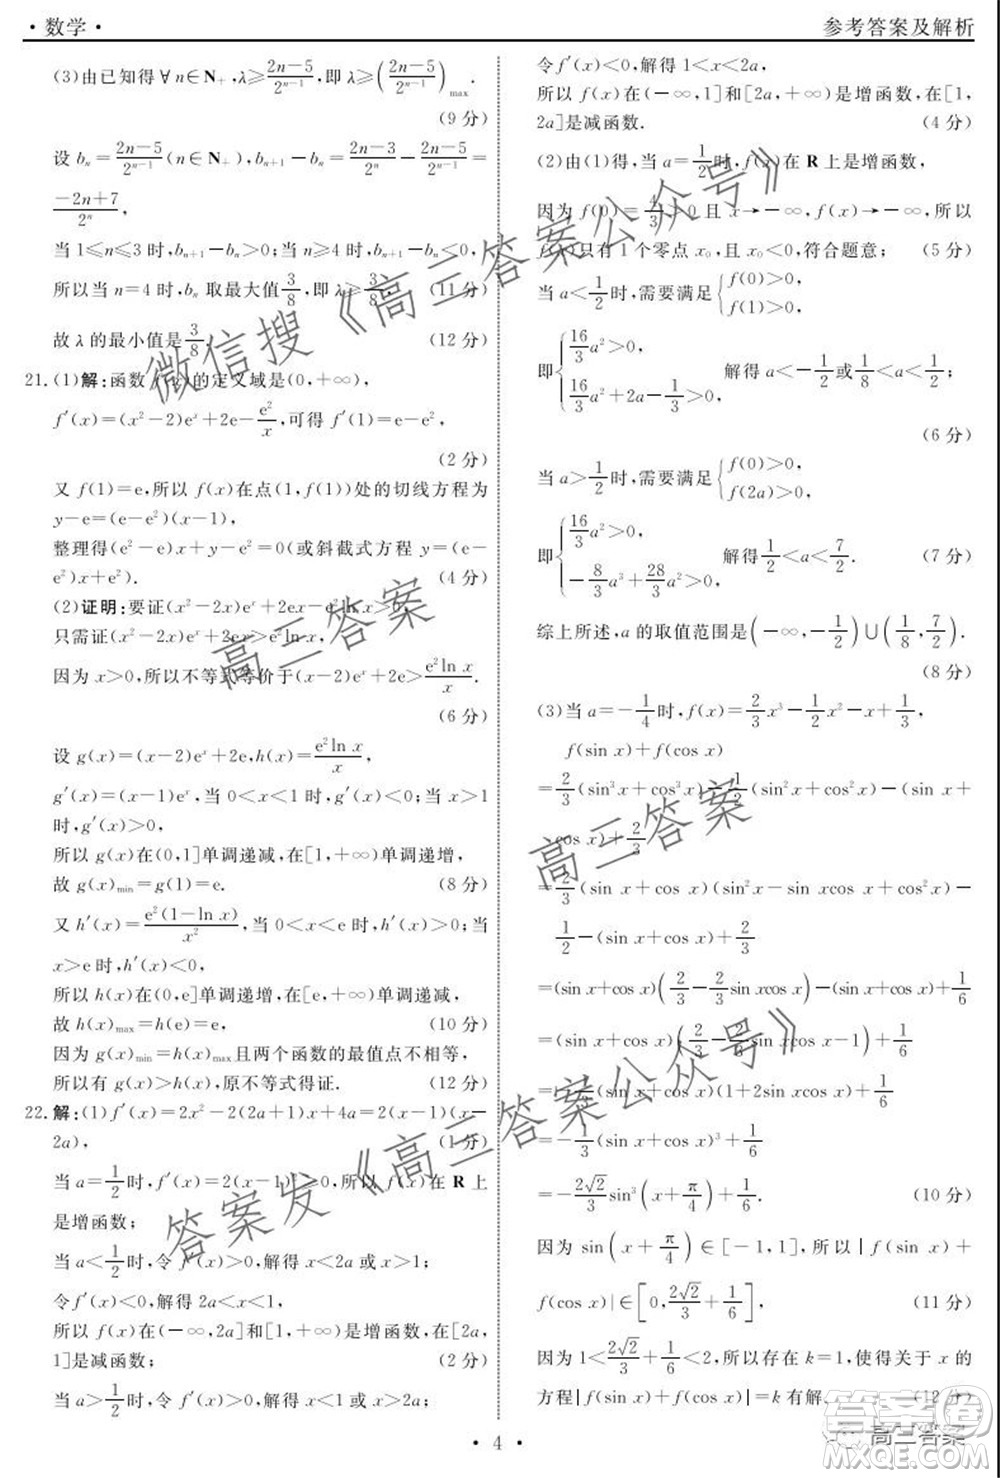 · 数学 ·
参考答案及解析
(3)由已知得∀n∈N₊,λ≥(2n−5)/2ⁿ⁻¹,即λ≥((2n−5)/2ⁿ⁻¹)max.
(9分)
设bₙ=(2n−5)/2ⁿ⁻¹(n∈N₊),bₙ₊₁−bₙ=(2n−3)/2ⁿ−(2n−5)/2ⁿ⁻¹=
(−2n+7)/2ⁿ,
当1≤n≤3时,bₙ₊₁−bₙ>0;当n≥4时,bₙ₊₁−bₙ<0,
所以当n=4时,bₙ取最大值3/8,即λ≥3/8, (11分)
故λ的最小值是3/8. (12分)
21.(1)解:函数f(x)的定义域是(0,+∞),
f′(x)=(x²−2)eˣ+2e−e²/x,可得f′(1)=e−e²,
(2分)
又f(1)=e,所以f(x)在点(1,f(1))处的切线方程为
y−e=(e−e²)(x−1),
整理得(e²−e)x+y−e²=0(或斜截式方程y=(e−
e²)x+e²). (4分)
(2)证明:要证(x²−2x)eˣ+2ex−e²ln x>0,
只需证(x²−2x)eˣ+2ex>e²ln x,
因为x>0,所以不等式等价于(x−2)eˣ+2e>e²ln x/x.
(6分)
设g(x)=(x−2)eˣ+2e,h(x)=e²ln x/x,
g′(x)=(x−1)eˣ,当0<x<1时,g′(x)<0;当x>1
时,g′(x)>0,
所以g(x)在(0,1]单调递减,在[1,+∞)单调递增,
故g(x)min=g(1)=e. (8分)
又h′(x)=e²(1−ln x)/x²,当0<x<e时,h′(x)>0;当
x>e时,h′(x)<0,
所以h(x)在(0,e]单调递增,在[e,+∞)单调递减,
故h(x)max=h(e)=e, (10分)
因为g(x)min=h(x)max且两个函数的最值点不相等,
所以有g(x)>h(x),原不等式得证. (12分)
22.解:(1)f′(x)=2x²−2(2a+1)x+4a=2(x−1)(x−
2a), (1分)
当a=1/2时,f′(x)=2(x−1)²≥0,所以f(x)在R上
是增函数;
当a<1/2时,令f′(x)>0,解得x<2a或x>1;
令f′(x)<0,解得2a<x<1,
所以f(x)在(−∞,2a]和[1,+∞)是增函数,在[2a,
1]是减函数; (2分)
当a>1/2时,令f′(x)>0,解得x<1或x>2a;
令f′(x)<0,解得1<x<2a,
所以f(x)在(−∞,1]和[2a,+∞)是增函数,在[1,
2a]是减函数. (4分)
(2)由(1)得,当a=1/2时,f(x)在R上是增函数,
因为f(0)=4/3>0且x→−∞,f(x)→−∞,所以
f(x)只有1个零点x₀,且x₀<0,符合题意; (5分)
当a<1/2时,需要满足{f(0)>0, f(1)>0,
即{16/3a²>0, 16/3a²+2a−1/3>0, 解得a<−1/2或1/8<a<1/2;
(6分)
当a>1/2时,需要满足{f(0)>0, f(2a)>0,
即{16/3a²>0, −8/3a³+28/3a²>0, 解得1/2<a<7/2. (7分)
综上所述,a的取值范围是(−∞,−1/2)∪(1/8,7/2).
(8分)
(3)当a=−1/4时,f(x)=2/3x³−1/2x²−x+1/3,
f(sin x)+f(cos x)
=2/3(sin³x+cos³x)−1/2(sin²x+cos²x)−(sin x+
cos x)+2/3
=2/3(sin x+cos x)(sin²x−sin xcos x+cos²x)−
1/2−(sin x+cos x)+2/3
=(sin x+cos x)(2/3−2/3sin xcos x−1)+1/6
=(sin x+cos x)(2/3−2/3sin xcos x−1)+1/6
=−1/3(sin x+cos x)(1+2sin xcos x)+1/6
=−1/3(sin x+cos x)³+1/6
=−2√2/3sin³(x+π/4)+1/6. (10分)
因为sin(x+π/4)∈[−1,1],所以|f(sin x)+
f(cos x)|∈[0,2√2/3+1/6], (11分)
因为1<2√2/3+1/6<2,所以存在k=1,使得关于x的
方程|f(sin x)+f(cos x)|=k有解. (12分)
· 4 ·
微信搜《高三答案公众号》
高三答案
高三答案
答案发《高三答案公众号》
高三答案
答案圈
MXQE.COM